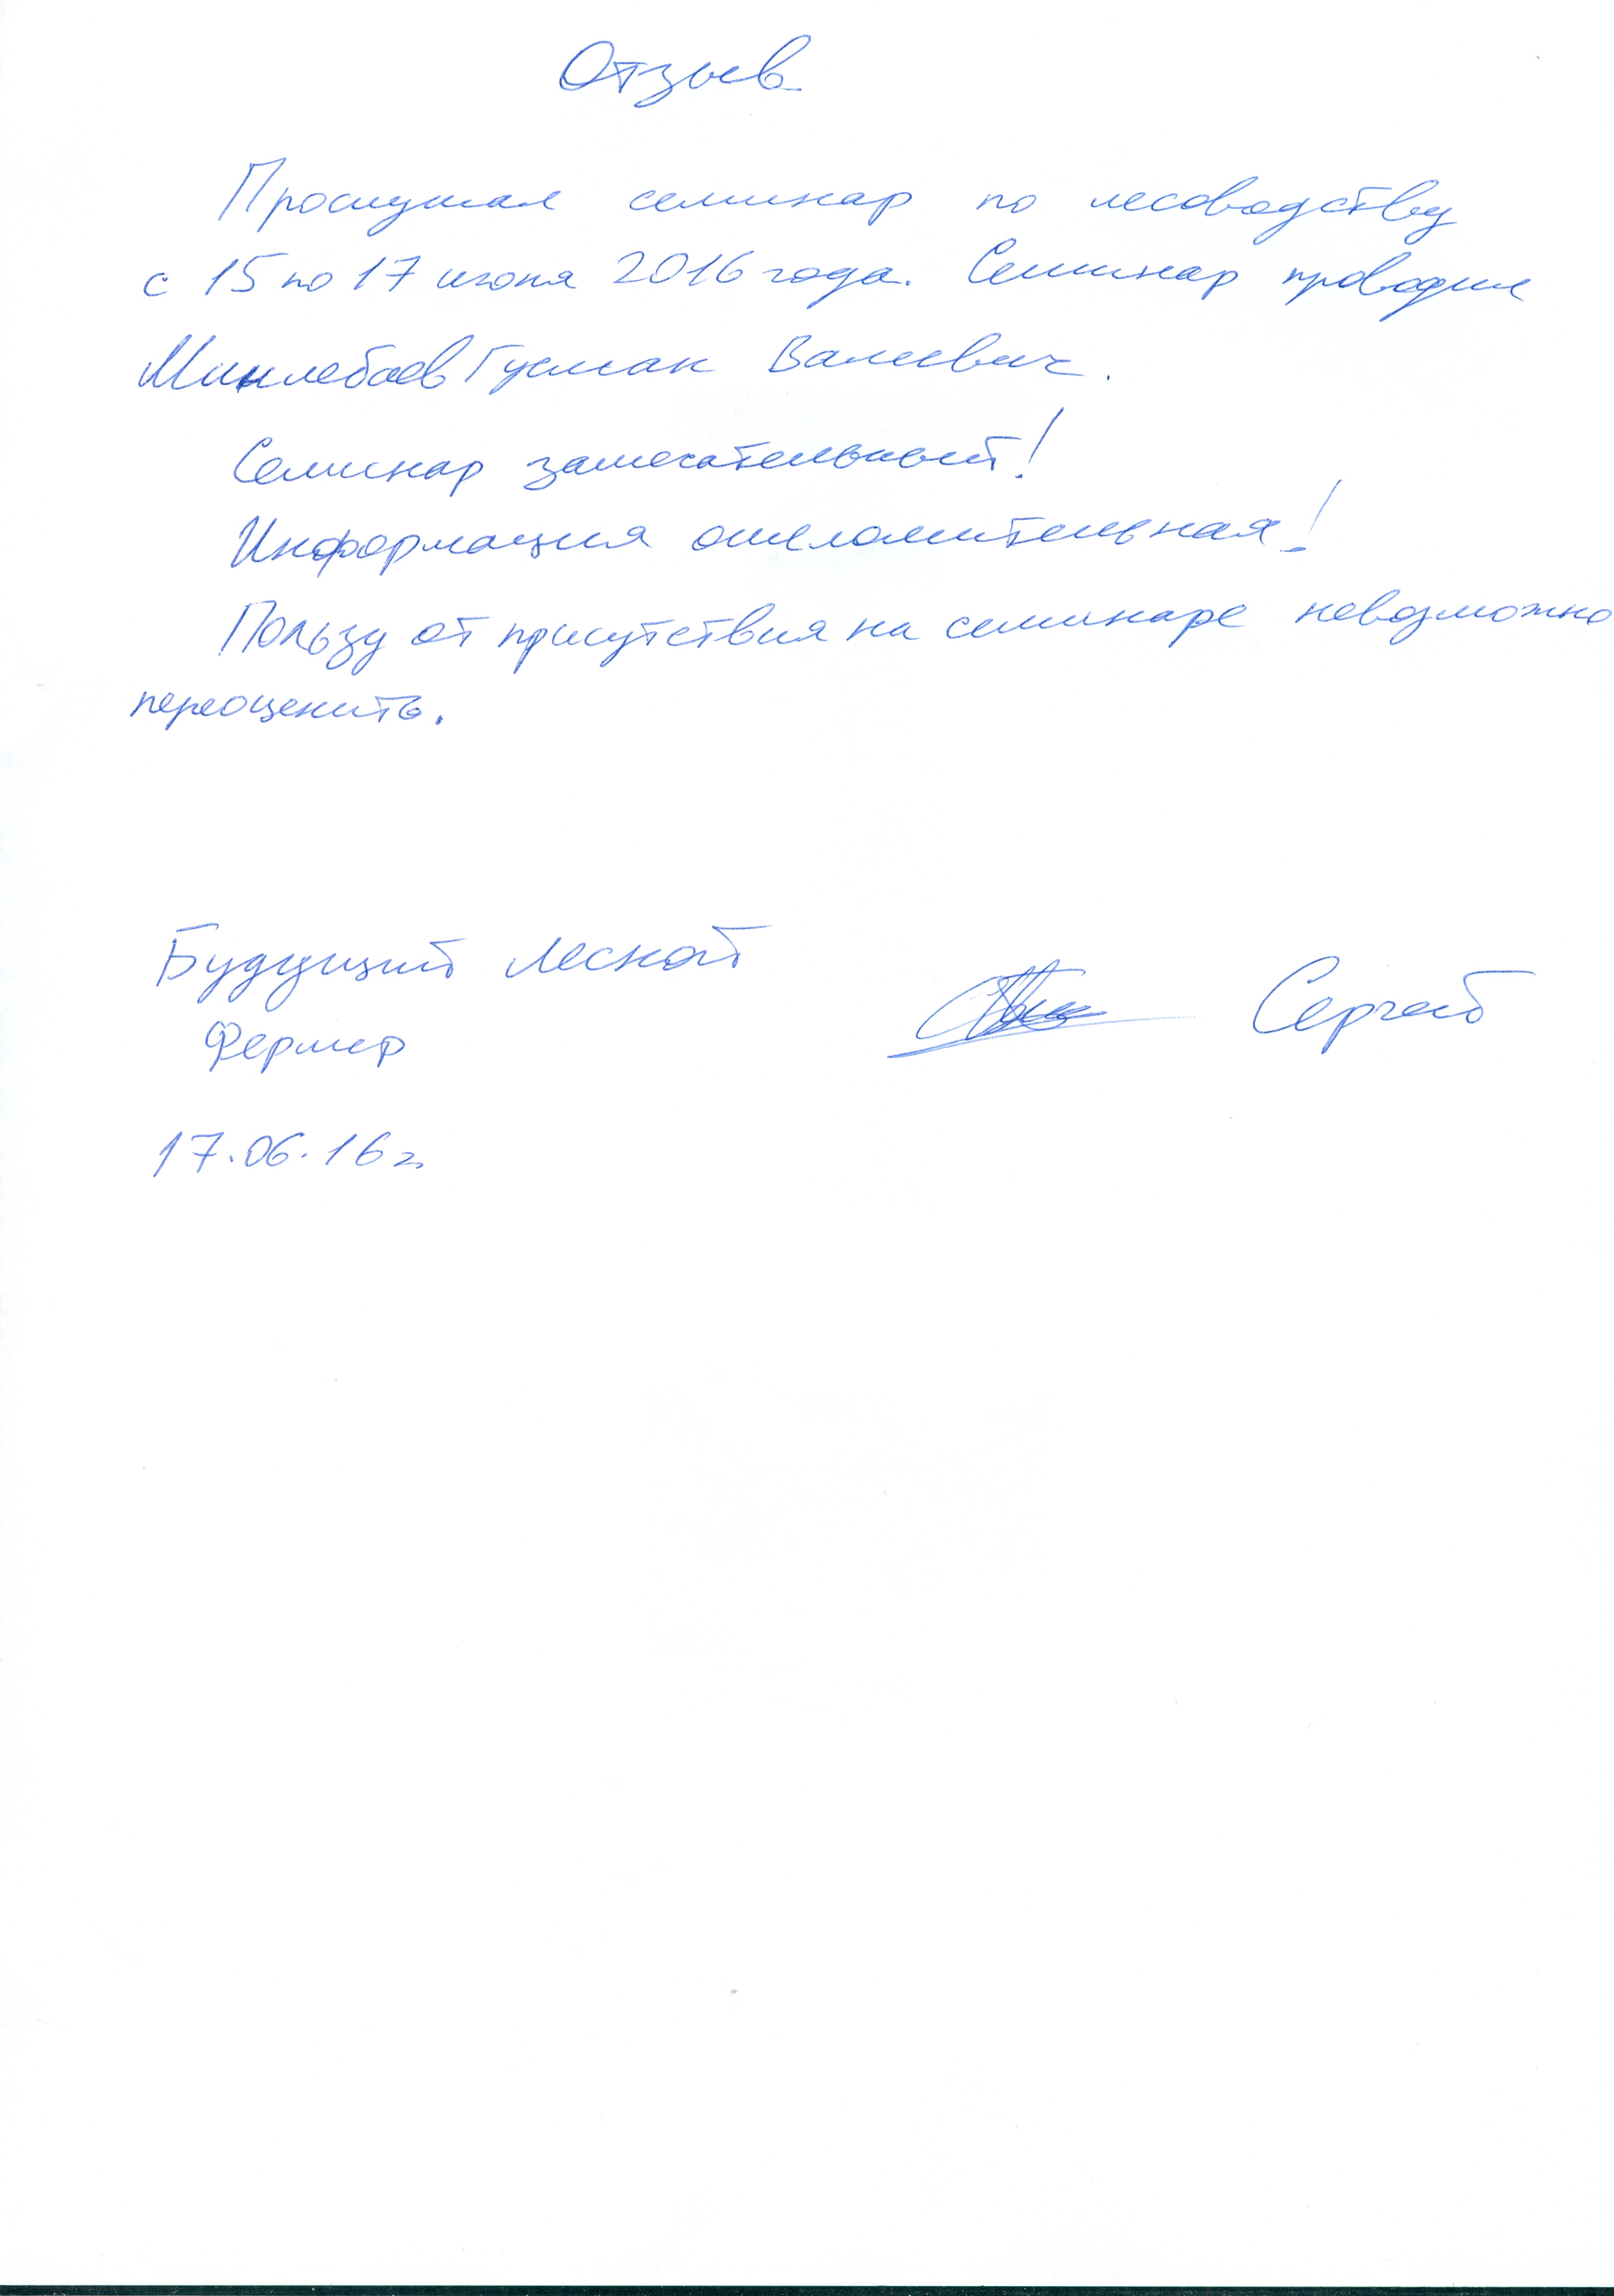 Отзыв
Прослушал семинар по лесоводству
с 15 по 17 июня 2016 года. Семинар проводил
Миклебаев Гусман Валиевич.
Семинар замечательный!
Информация ошеломительная!
Пользу от присутствия на семинаре невозможно
переоценить.
Будущий лесной
фермер
Сергей
17.06.16 г.